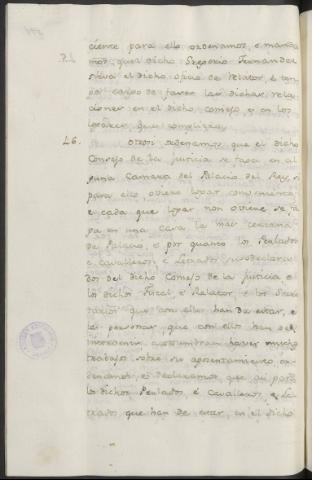 ciente para ello ordenamos, e manda
mos, quel dicho Gregorio Fernandez
sirva el dicho oficio de Relator, e ten
ga cargo de facer las dichas rela
ciones en el dicho consejo e en los
logares que compliere.
46. Otrosi ordenamos que el dicho
Consejo de la justicia se faga en al
guna Camara del Palacio del Rey, si
para ello oviere logar convenience,
e cada que logar non oviere se fa
ga en una casa la mas cercana
del Palacio, e por quanto los Perlados
e cavalleros, e Letrados
dos del dicho Consejo de la justicia, e
los dichos Fiscal, e Relator, e los Secre
tarios que con ellos han de estar, e
las personas, que con ellos han de
haver mucho
trabajo sobre su aposentamiento or
denamos, e declaramos que
los dichos Perlados, e cavalleros, e Le
trados que han de estar, en el dicho